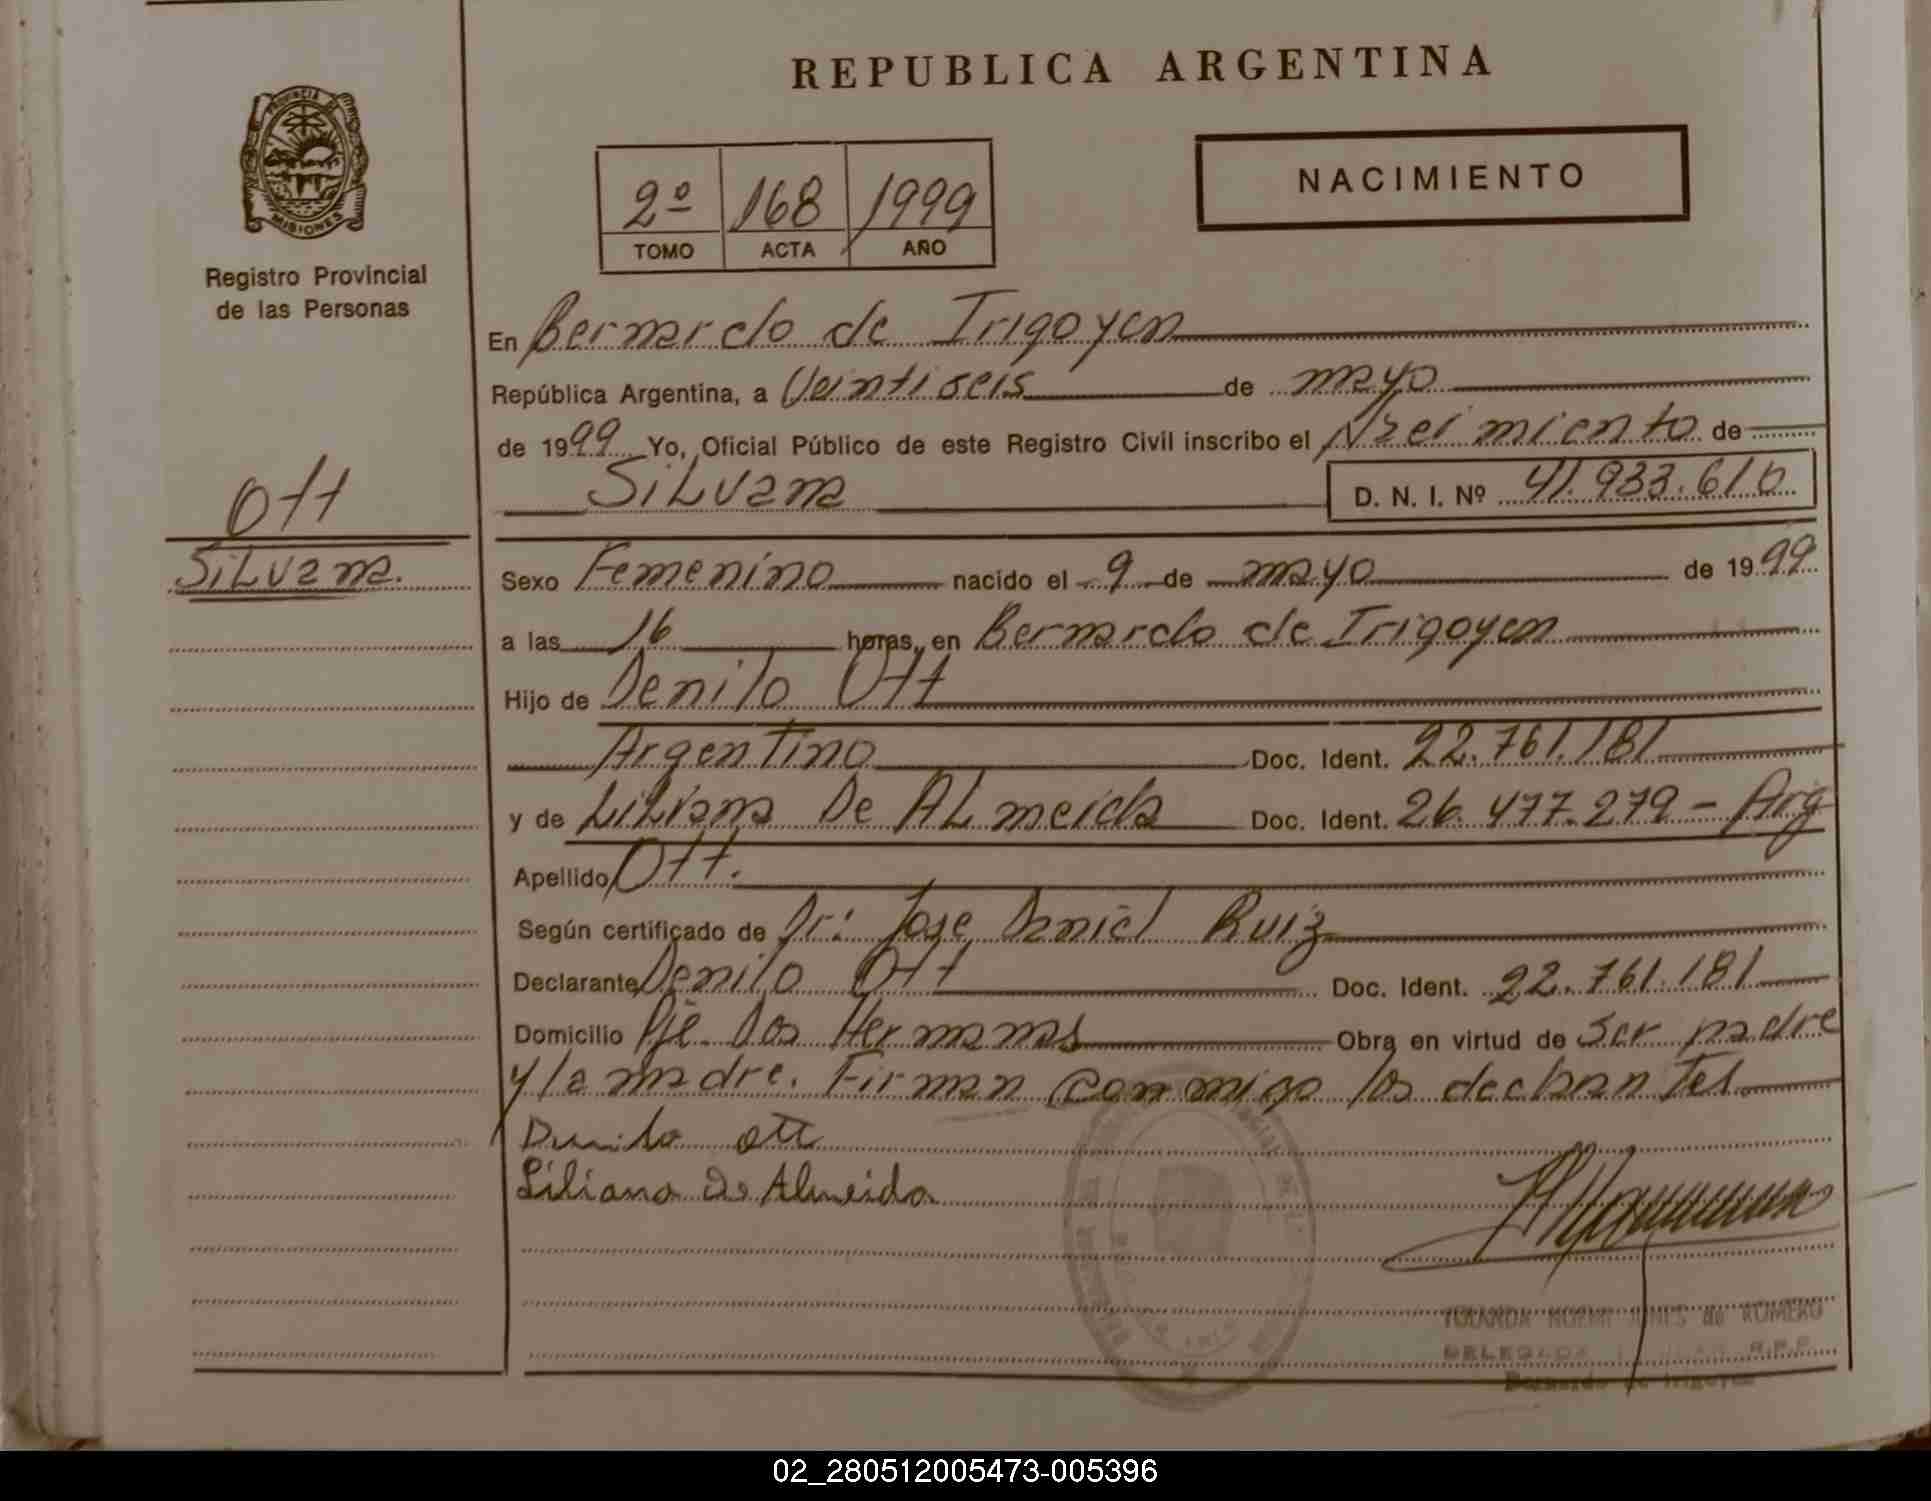 REPUBLICA ARGENTINA
PROVINCIA DE
MISIONES
Registro Provincial
de las Personas
2º 168 1999
TOMO ACTA AÑO
NACIMIENTO
En Bernardo de Irigoyen
República Argentina, a Veintiseis de mayo
de 1999 Yo, Oficial Público de este Registro Civil inscribo el Nacimiento de
Silvana D. N. I. Nº 41.933.610
Ott
Silvana.
Sexo Femenino nacido el 9 de mayo de 1999
a las 16 horas, en Bernardo de Irigoyen
Hijo de Denilo Ott
Argentino Doc. Ident. 22.761.181
y de Liliana De Almeida Doc. Ident. 26.477.279 - Arg
Apellido Ott.
Según certificado de Dr: Jose Daniel Ruiz
Declarante Denilo Ott Doc. Ident. 22.761.181
Domicilio Pje. Dos Hermanas Obra en virtud de Ser padre
y la madre. Firman conmigo los declarantes
Denilo ott
Liliana de Almeida
YOLANDA NOEMI JUNES de ROMERO
DELEGADA R.P.P.
Bernardo de Irigoyen
02_280512005473-005396